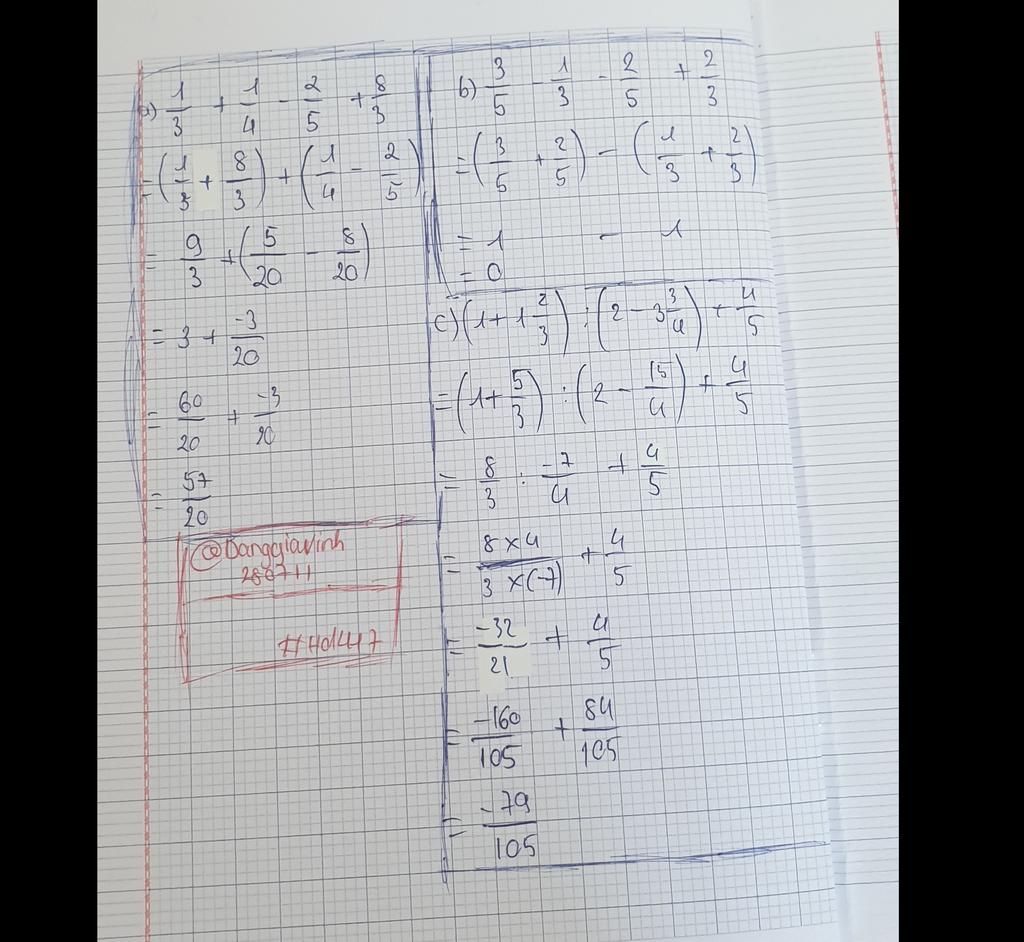 a) 1/3 + 1/4 - 2/5 + 8/3
= (1/3 + 8/3) + (1/4 - 2/5)
= 9/3 + (5/20 - 8/20)
= 3 + -3/20
= 60/20 + -3/20
= 57/20
@Danggiavinh
280711
#Hd247
b) 3/5 - 1/3 - 2/5 + 2/3
= (3/5 + 2/5) - (1/3 + 2/3)
= 1 - 1
= 0
c) (1 + 1 2/3) : (2 - 3 3/4) + 4/5
= (1 + 5/3) : (2 - 15/4) + 4/5
= 8/3 : -7/4 + 4/5
= 8×4/3×(-7) + 4/5
= -32/21 + 4/5
= -160/105 + 84/105
= -79/105